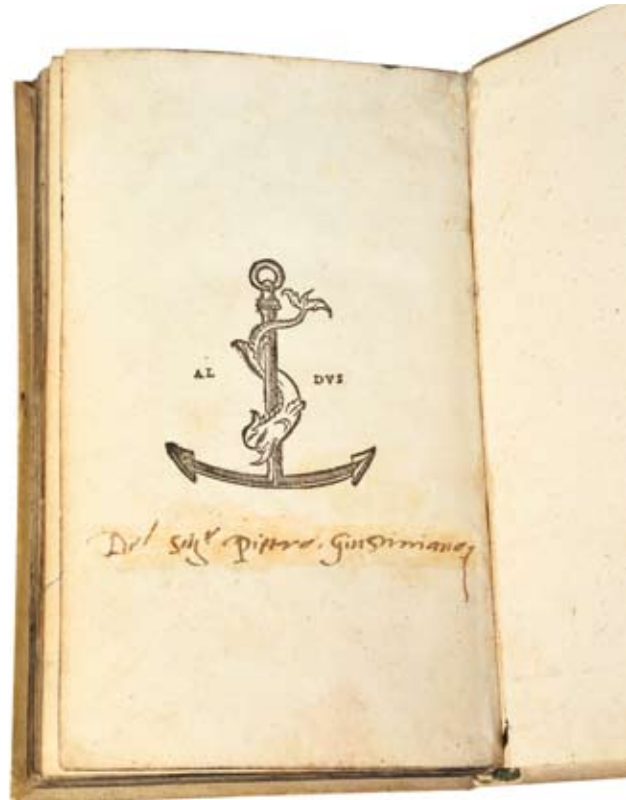 AL DVS
Del Sig.r Pietro Giustiniano